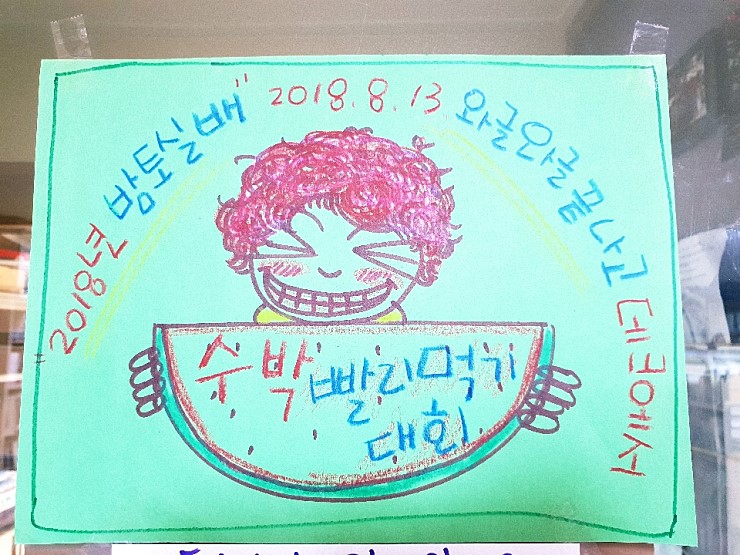 "2018년 밤토실배"
2018.8.13
와글와글끝나고 데크에서
수박 빨리먹기
대회